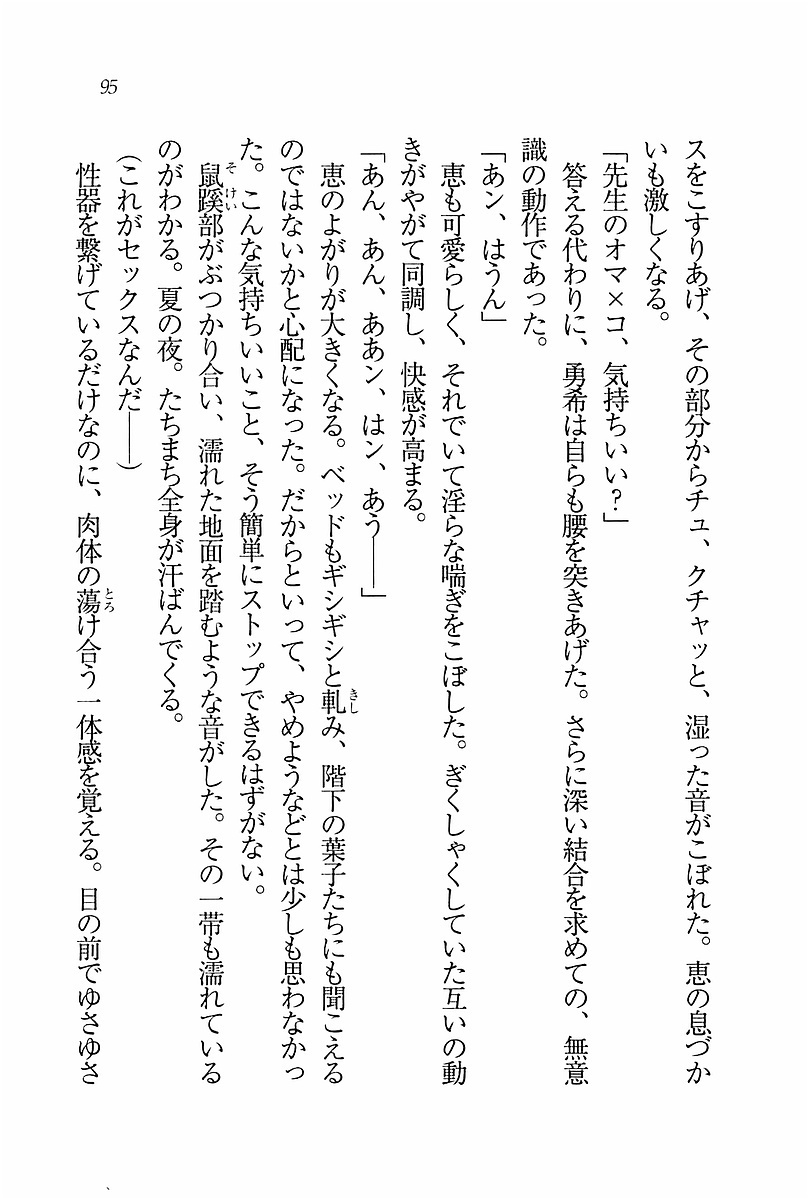 95
スをこすりあげ、その部分からチュ、クチャッと、湿った音がこぼれた。恵の息づか
いも激しくなる。
「先生のオマ×コ、気持ちいい？」
答える代わりに、勇希は自らも腰を突きあげた。さらに深い結合を求めての、無意
識の動作であった。
「あン、はうん」
恵も可愛らしく、それでいて淫らな喘ぎをこぼした。ぎくしゃくしていた互いの動
きがやがて同調し、快感が高まる。
「あん、あん、ああン、はン、あう――」
恵のよがりが大きくなる。ベッドもギシギシと軋み、階下の葉子たちにも聞こえる
のではないかと心配になった。だからといって、やめようなどとは少しも思わなかっ
た。こんな気持ちいいこと、そう簡単にストップできるはずがない。
鼠蹊部がぶつかり合い、濡れた地面を踏むような音がした。その一帯も濡れている
のがわかる。夏の夜。たちまち全身が汗ばんでくる。
（これがセックスなんだ――）
性器を繋げているだけなのに、肉体の蕩け合う一体感を覚える。目の前でゆさゆさ